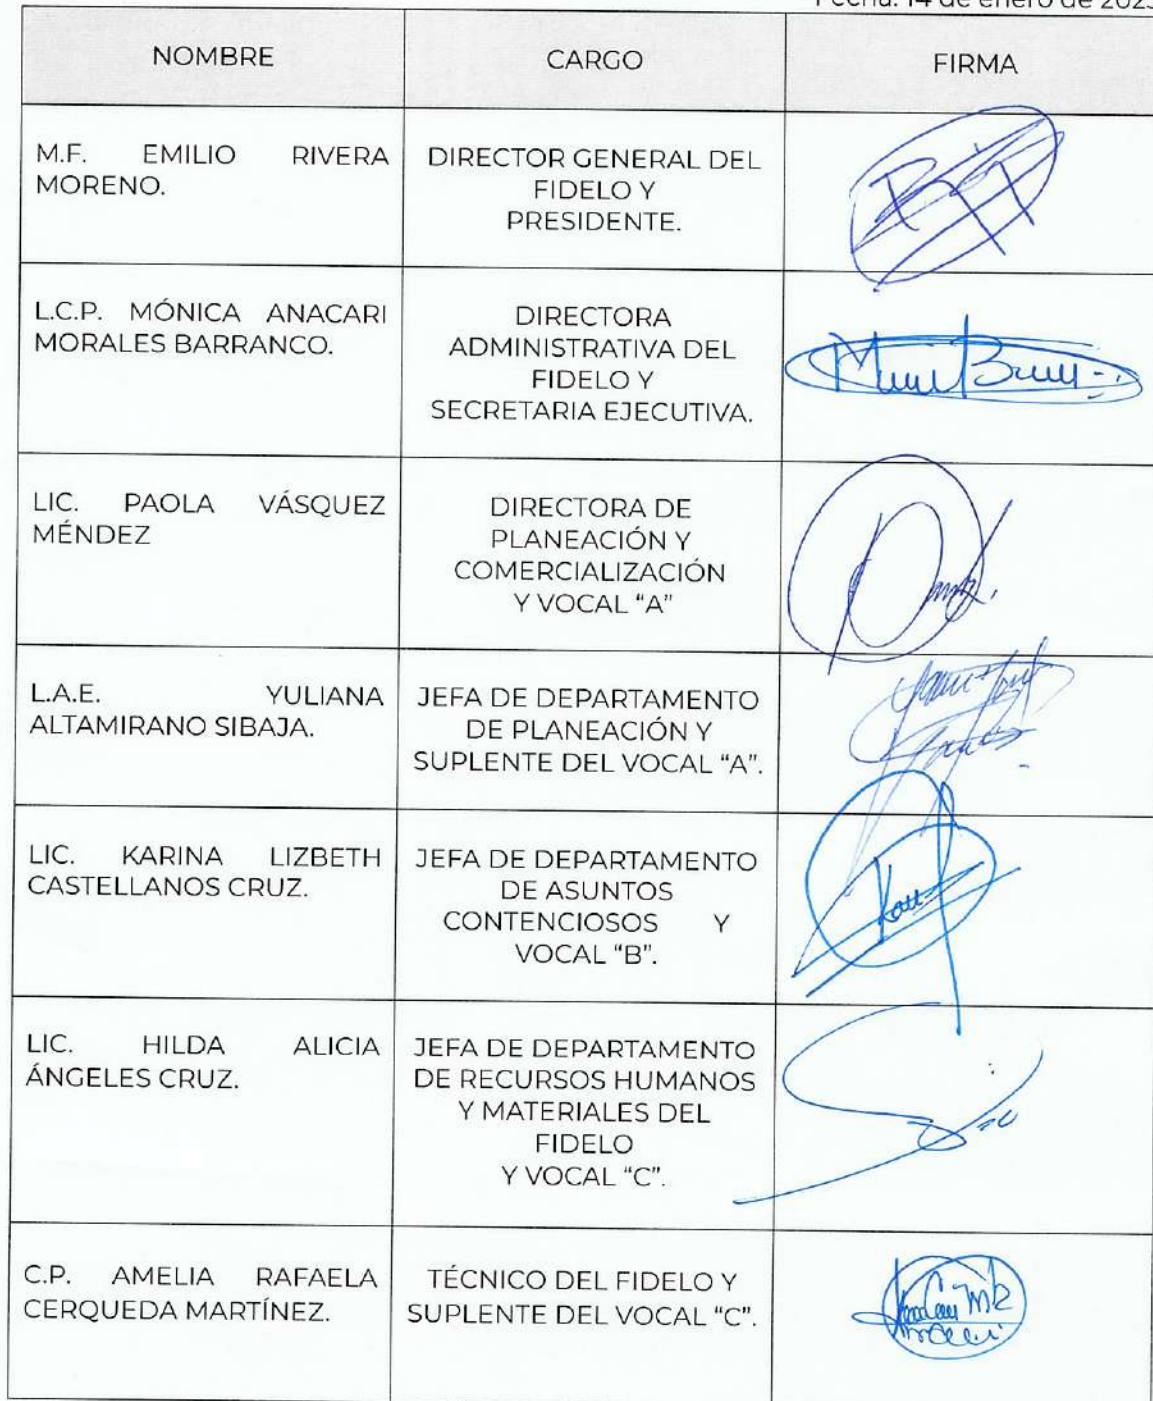 Fecha: 14 de enero de 2025
NOMBRE
CARGO
FIRMA
M.F. EMILIO RIVERA
MORENO.
DIRECTOR GENERAL DEL
FIDELO Y
PRESIDENTE.
L.C.P. MÓNICA ANACARI
MORALES BARRANCO.
DIRECTORA
ADMINISTRATIVA DEL
FIDELO Y
SECRETARIA EJECUTIVA.
LIC. PAOLA VÁSQUEZ
MÉNDEZ
DIRECTORA DE
PLANEACIÓN Y
COMERCIALIZACIÓN
Y VOCAL “A”
L.A.E. YULIANA
ALTAMIRANO SIBAJA.
JEFA DE DEPARTAMENTO
DE PLANEACIÓN Y
SUPLENTE DEL VOCAL “A”.
LIC. KARINA LIZBETH
CASTELLANOS CRUZ.
JEFA DE DEPARTAMENTO
DE ASUNTOS
CONTENCIOSOS Y
VOCAL “B”.
LIC. HILDA ALICIA
ÁNGELES CRUZ.
JEFA DE DEPARTAMENTO
DE RECURSOS HUMANOS
Y MATERIALES DEL
FIDELO
Y VOCAL “C”.
C.P. AMELIA RAFAELA
CERQUEDA MARTÍNEZ.
TÉCNICO DEL FIDELO Y
SUPLENTE DEL VOCAL “C”.